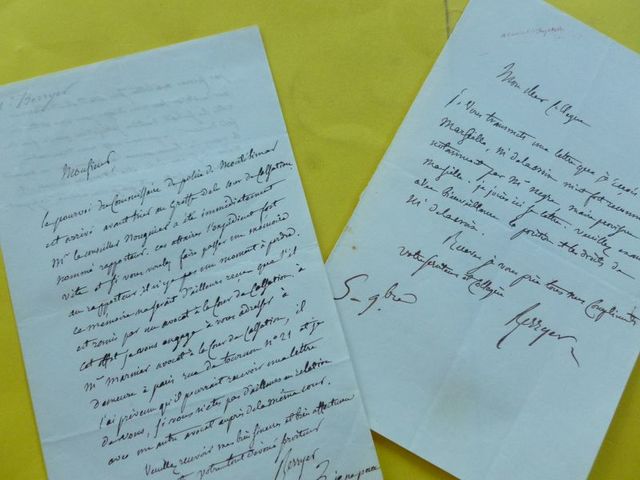 Mr Berryer
Monsieur
Le pourvoi du Commissaire de police de Montélimar
est arrivé avant hier au Greffe de la Cour de Cassation.
Mr le Conseiller Nouguier a été immédiatement
nommé rapporteur. Ces affaires s'expédient fort
vite et si vous voulez faire passer un mémoire
au rapporteur il n'y a pas un moment à perdre.
ce mémoire ne serait d'ailleurs reçu que s'il
est remis par un avocat à la Cour de Cassation. à
cet effet je vous engage à vous adresser à
Mr Marnier avocat à la Cour de Cassation, il
demeure à paris rue de tournon n° 21 et je
l'ai prévenu qu'il pourrait recevoir une lettre
de vous, si vous n'êtes pas d'ailleurs en relation
avec un autre avocat auprès de la même cour.
Veuillez recevoir mes bien sincères et bien affectueux
votre tout dévoué serviteur
Berryer
Mon cher Collègue
Je vous transmets une lettre que je
Marseille. Mr
notamment par Mr
Marseille. je joins ici sa lettre. veuillez
avec bienveillance la position et les droits de
Mr
Recevez je vous prie tous mes Compliments
votre serviteur et Collègue
Berryer
5 - 9bre